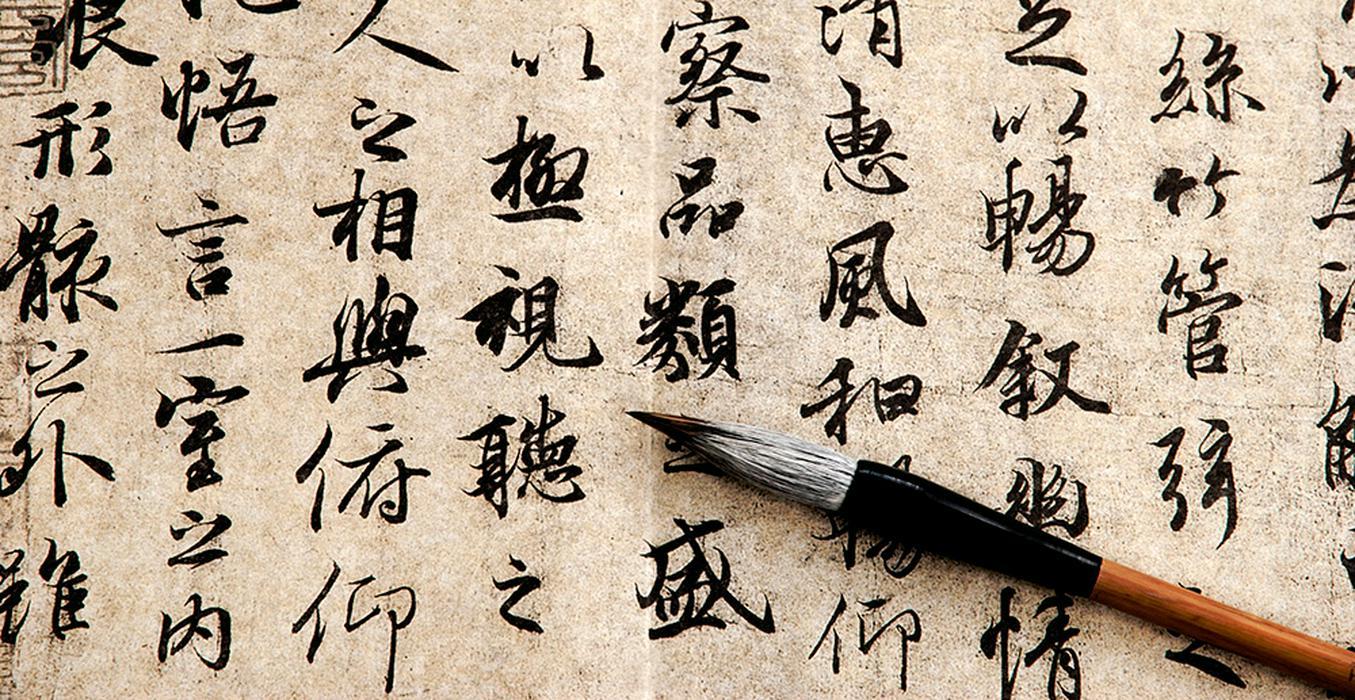 絲竹管弦之
以暢叙幽情
清惠風和暢仰
察品類之盛
以極視聽之
人之相與俯仰
悟言一室之内
浪形骸之外雖